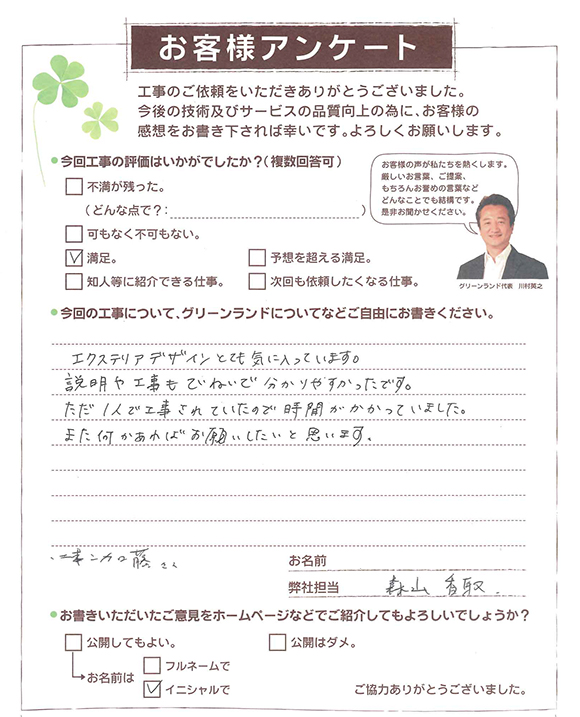 お客様アンケート
工事のご依頼をいただきありがとうございました。
今後の技術及びサービスの品質向上の為に、お客様の
感想をお書き下されば幸いです。よろしくお願いします。
今回工事の評価はいかがでしたか？（複数回答可）
不満が残った。
（どんな点で？：　）
可もなく不可もない。
満足。
予想を超える満足。
知人等に紹介できる仕事。
次回も依頼したくなる仕事。
お客様の声が私たちを熱くします。
厳しいお言葉、ご提案、
もちろんお誉めの言葉など
どんなことでも結構です。
是非お聞かせください。
グリーンランド代表　川村英之
今回の工事について、グリーンランドについてなどご自由にお書きください。
エクステリアデザインとても気に入っています。
説明や工事もていねいで分かりやすかったです。
ただ1人で工事されていたので時間がかかっていました。
また何かあればお願いしたいと思います。
加藤さん
お名前
弊社担当　森山 香取
お書きいただいたご意見をホームページなどでご紹介してもよろしいでしょうか？
公開してもよい。
公開はダメ。
お名前は
フルネームで
イニシャルで
ご協力ありがとうございました。